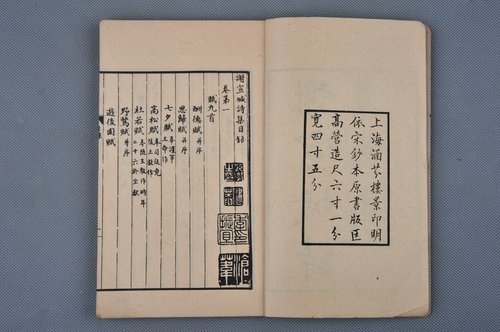 上海涵芬樓景印明
依宋鈔本原書版匡
高營造尺六寸一分
寬四寸五分
謝宣城詩集目錄
卷第一
賦九首
酬德賦并序
思歸賦并序
七夕賦奉護軍王命作
高松賦奉司徒竟陵王教作
杜若賦
野鶩賦并序
遊後園賦
滄葦